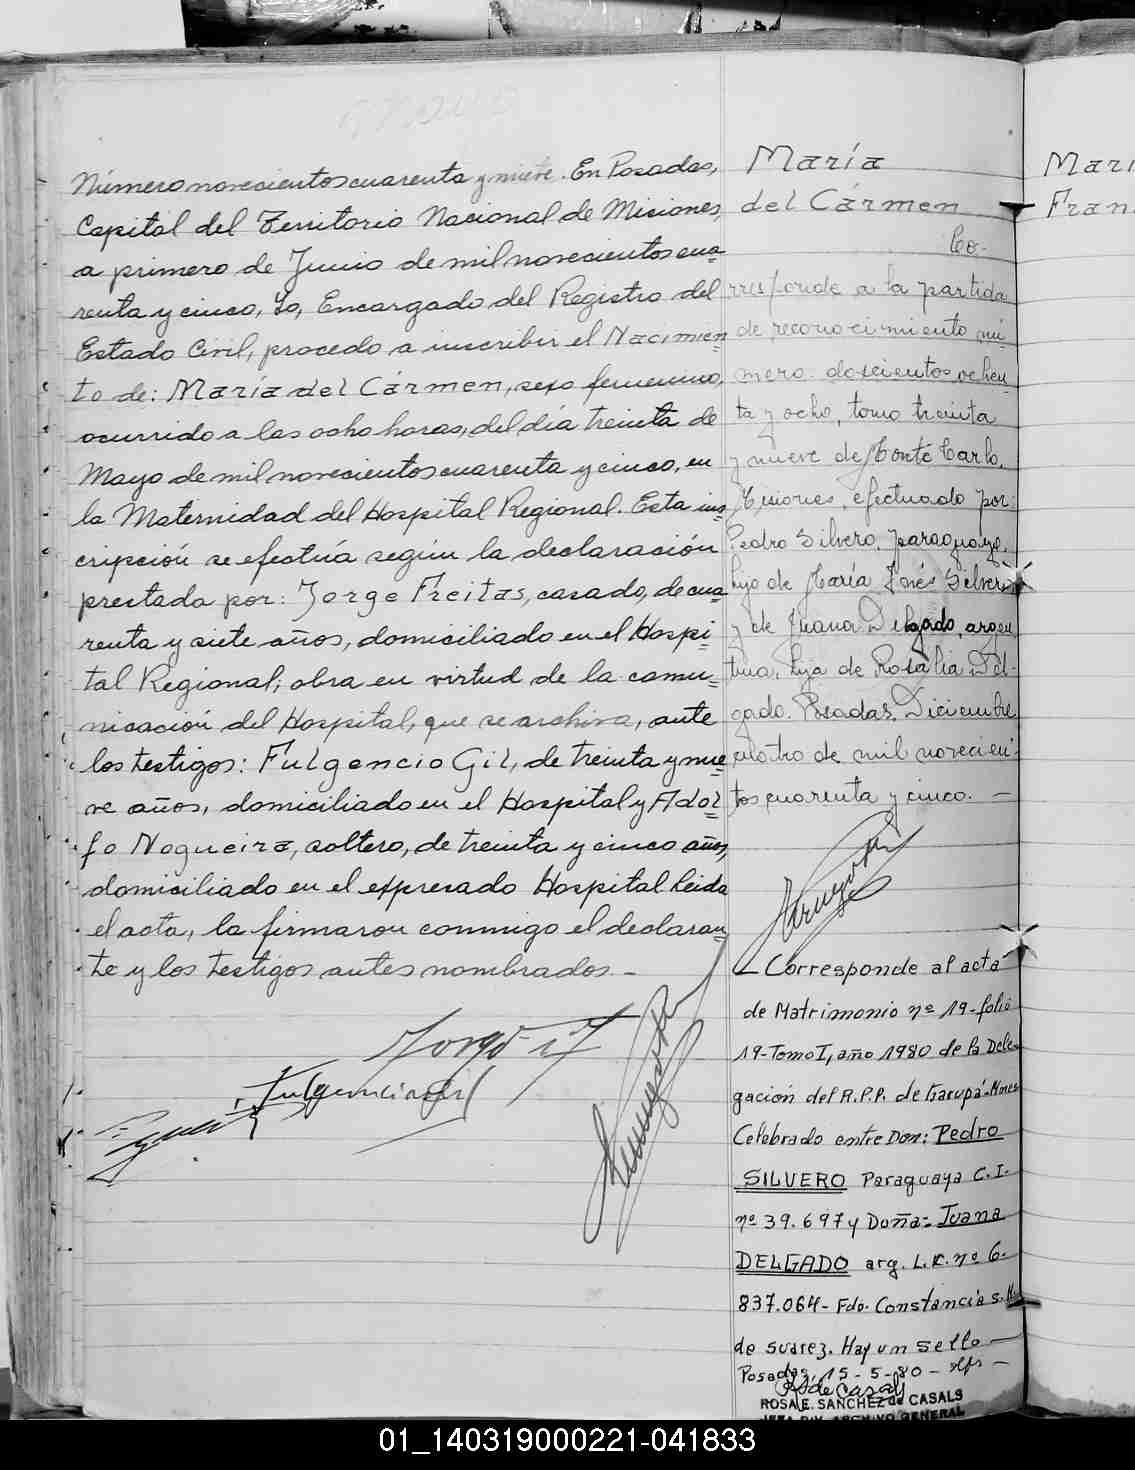 Número novecientos cuarenta y nueve. En Posadas,
Capital del Territorio Nacional de Misiones,
a primero de Junio de mil novecientos cua=
renta y cinco, Yo, Encargado del Registro del
Estado Civil, procedo a inscribir el Nacimien=
to de: María del Cármen, sexo femenino,
ocurrido a las ocho horas, del día treinta de
Mayo de mil novecientos cuarenta y cinco, en
la Maternidad del Hospital Regional. Esta ins
cripción se efectúa según la declaración
prestada por: Jorge Freitas, casado, de cua=
renta y siete años, domiciliado en el Hospi=
tal Regional; obra en virtud de la comu=
nicación del Hospital, que se archiva, ante
los testigos: Fulgencio Gil, de treinta y nue
ve años, domiciliado en el Hospital y Adol
fo Nogueira, soltero, de treinta y cinco años,
domiciliado en el expresado Hospital. Leida
el acta, la firmaron conmigo el declaran=
te y los testigos antes nombrados. -
Fulgencio Gil
María
del Cármen
Co-
rresponde a la partida
de reconocimiento nú-
mero doscientos ochen
ta y ocho, tomo treinta
y nueve de Monte Carlo,
Misiones, efectuado por:
Pedro Silvero, paraguayo,
hijo de María Inés Silvero
y de Juana Delgado, argen
tina, hija de Rosalia Del-
gado. Posadas, Diciembre
cuatro de mil novecien-
tos cuarenta y cinco. -
- Corresponde al acta
de Matrimonio nº 19-folio
19-Tomo I, año 1980 de la Dele-
gación del R.P.P. de Garupá-Mnes
Celebrado entre Don: Pedro
SILVERO Paraguaya C.I.
nº 39.697 y Doña: Juana
DELGADO arg. L.C. nº 6.
837.064- Fdo. Constancia S. M.
de Suarez. Hay un sello -
Posadas, 15-5-80 -
RS de Casals
ROSA E. SANCHEZ de CASALS
JEFA DIV. ARCHIVO GENERAL
Mari
Fran
01_140319000221-041833